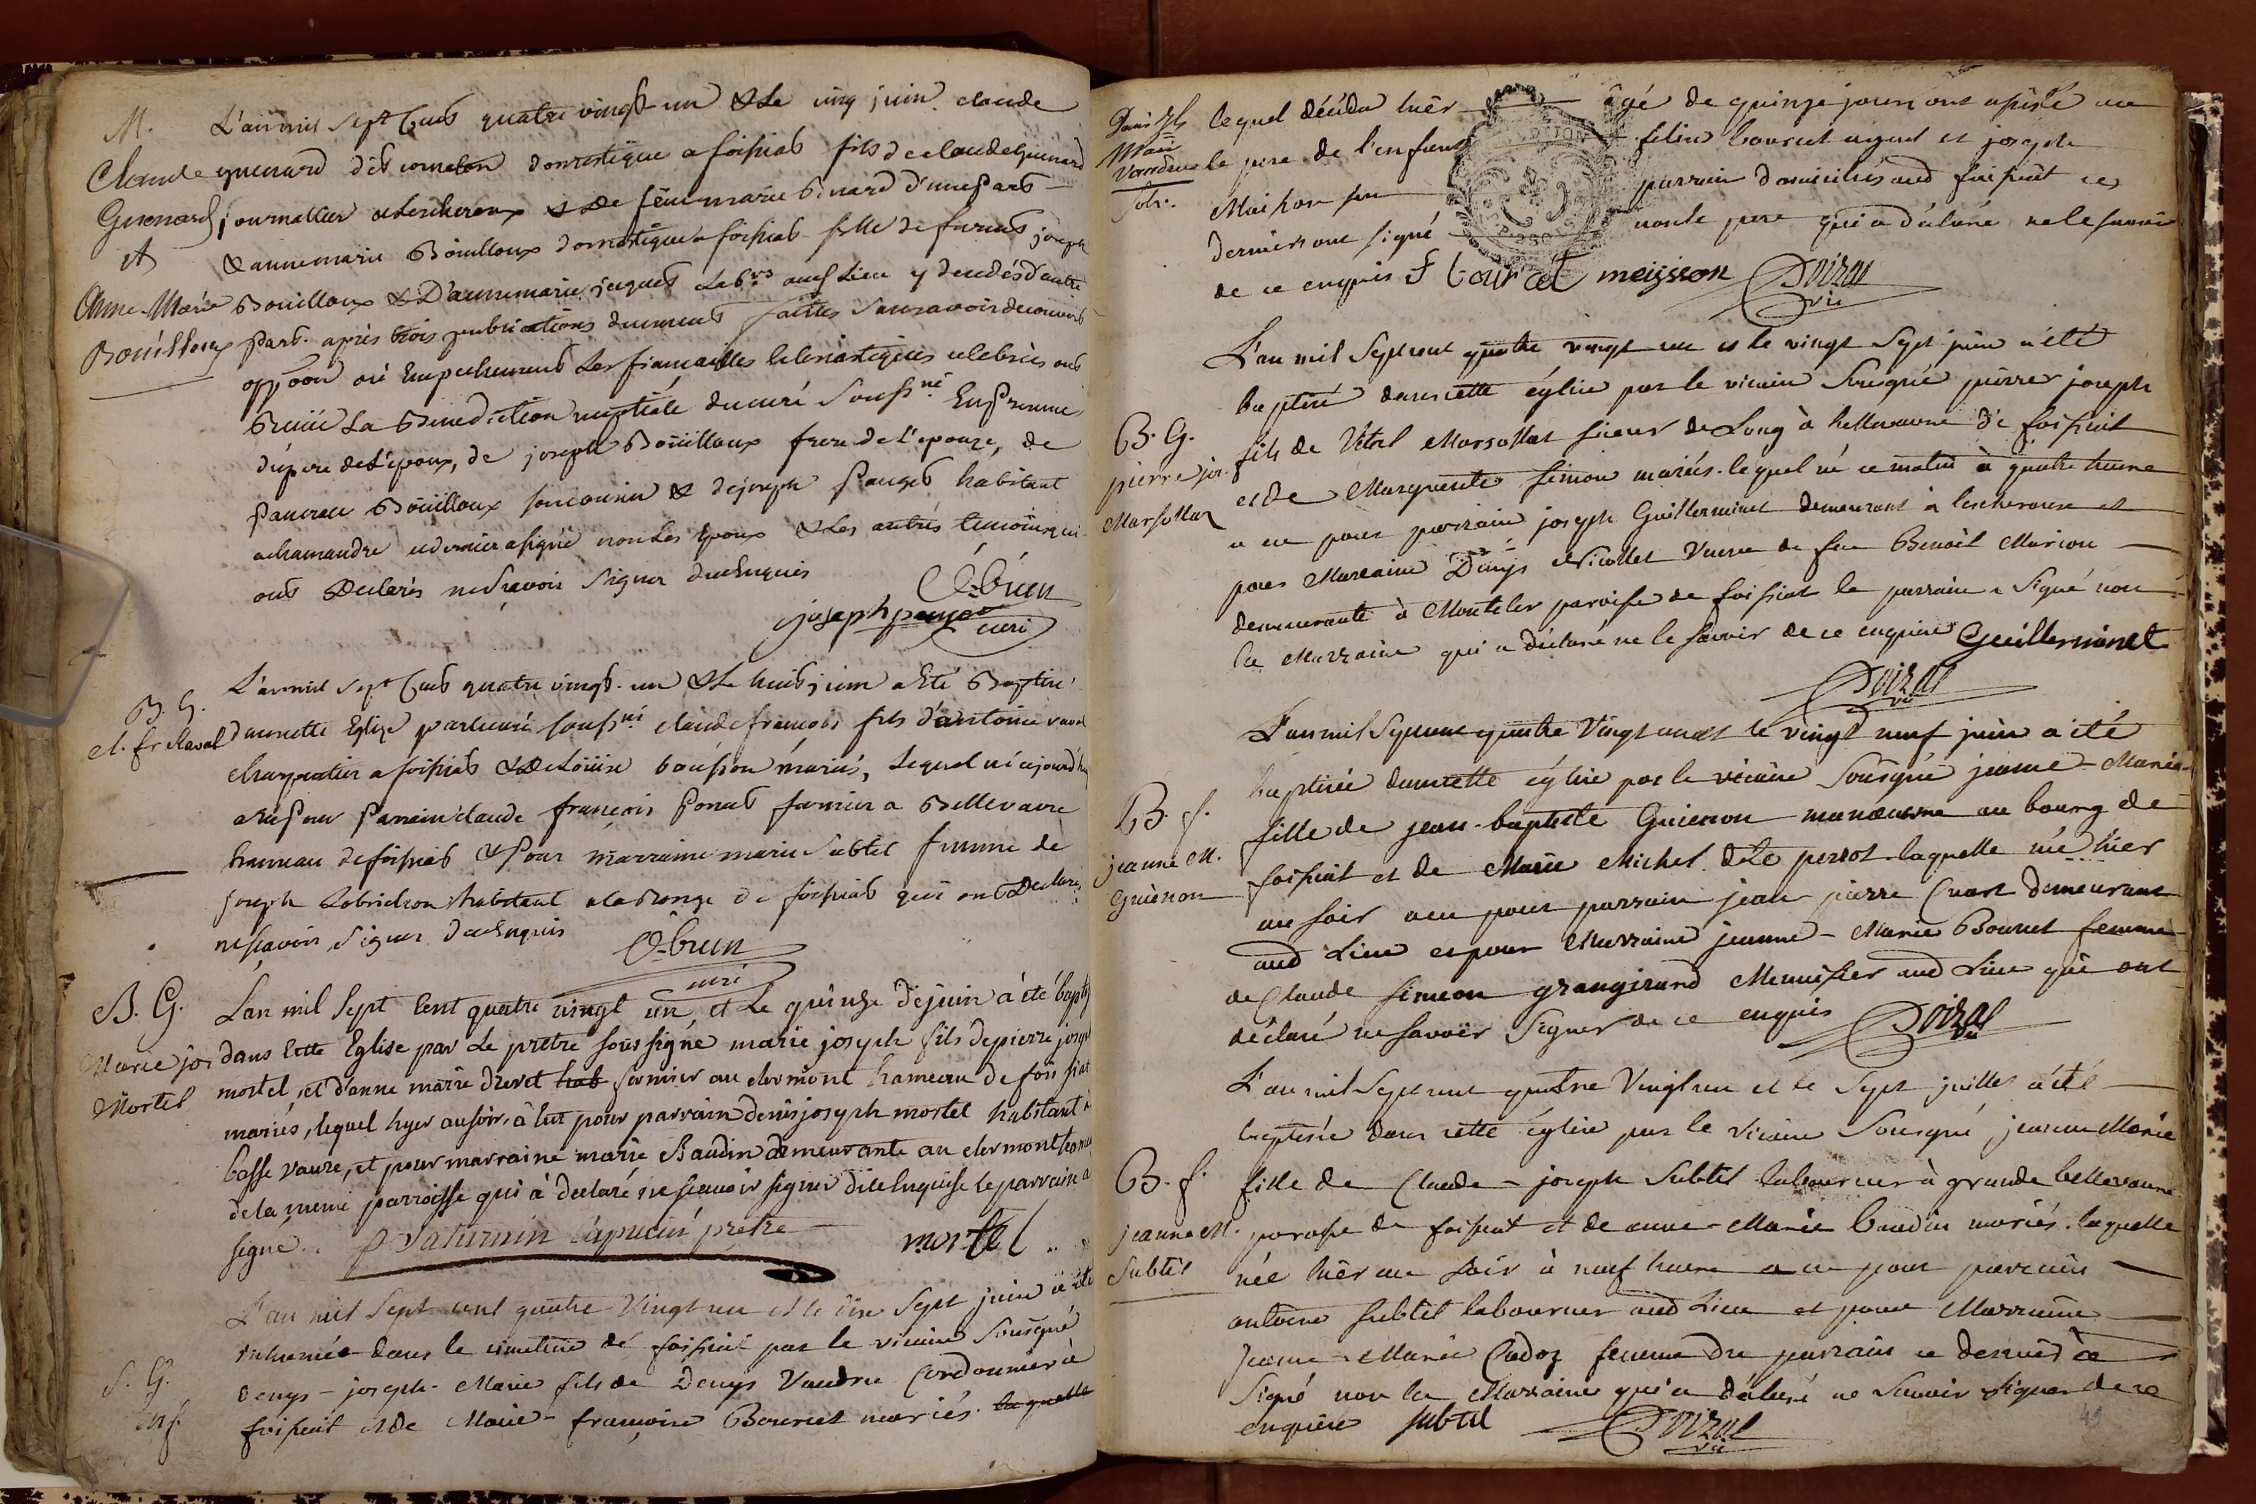 M. L'an mil sept Cent quatre vingt un & Le cinq juin claude
Claude guenard dit cometon domestique a foissiat fils de claude guenard
Guenard journallier a Lescheroux & de feue marie Benard d'une part
et & anne marie Boüilloux domestique a foissiat fille de furent joseph
Anne-Marie Boüilloux & D'anne marie juguet Lab.rs aud Lieu y deucédés d'autre
Boüilloux part. après trois publications duement faittes sans avoir decouvert
oppoon ni Empechement Les fiancailles Eclesiastiques celebrées ont
Reçüe La Benediction nuptiale du curé Souss.né En presence
du pere de L'epoux, de joseph Boüilloux frere de L'epouze, de
Boüilloux son cousin & de joseph Pauget habitant
a chamandre ce dernier a signé non Les Epoux & Les autres temoins qui
ont Declarés ne sçavoir signer de ce Enquis
joseph pauget Cebrun curé
L'an mil sept Cent quatre vingt-un & Le huit juin a Eté Baptisé
B. G. dans cette Eglize par le curé souss.né claude françois fils d'antoine raval
cl. fr. Raval charpentier a foissiat & de Loüise bouisson mariés, Lequel né aujourd'huy
a Eu pour Parrain claude françois Ponat fermier a Bellevavre
hameau de foissiat & pour marraine marie Subtel femme de
joseph habitant a la Ronge de foissiat qui ont Declarés
ne sçavoir signer de ce Enquis
Cebrun curé
B. G. L'an mil sept Cent quatre vingt un et Le quinze de juin à été bapt
Marie jos dans Cette Eglise par Le pretre soussigné marie joseph fils de pierre joseph
Mortel mortel, et d'anne marie druet hab fermier au clermont hameau de foissiat
mariés, lequel hyer au soir, à Eut pour parrain denis joseph mortel habitant à
basse vavre, et pour marraine marie Baudin demeurante au clermont
de la meme parroisse qui à declaré ne sçauoir signer de ce Enquise le parrain a
signé. P Saturnin Capucin pretre mortel
L'an mil sept cent quatre vingt un et le dix sept juin à été
S. G. Inhumée dans le cimetiere de foissiat par le vicaire Sousigné
Enf. denys-joseph-Marie fils de Denys Vaudru Cordonnier à
foissiat et de Marie-françoise Bourcet mariés. laquelle
Denis lequel décédu hièr âgé de quinze jours ont assisté au
le pere de l'enfant felix bourcet ayeul et joseph
Maisson son parrain domiciliés aud foissiat ces
derniers ont signé non le pere qui a déclaré ne le savoir
de ce enquis f bourcet meisson Doizat vic
L'an mil sept cent quatre vingt un et le vingt sept juin a été
baptisé dans cette église par le vicaire Sousigné pierre joseph
B. G. fils de Vital Marsollat sieur de Long à bellevavre de foissiat
pierre jos. et de Marguerite Simon mariés. lequel né ce matin à quatre heures
Marsollat a eu pour parrain joseph Guillerminet demeurant à lescheroux et
pour Marraine Denyse Nicollet Veuve de feu Benoit Marion
demeurante à Montelier paroisse de foissiat le parrain a signé non
la Marraine qui a déclaré ne le savoir de ce enquise Guillerminet
Doizat vic
L'an mil sept cent quatre vingt un et le vingt neuf juin a été
baptisée dans cette église par le vicaire Sousigné jeanne-Marie
B. f. fille de jean-baptiste Guienon manoeuvre au bourg de
jeanne M. foissiat et de Marie Michel dite perrot laquelle née hier
Guienon au soir a eu pour parrain jean pierre Cuaz demeurant
aud Lieu et pour Marraine jeanne-Marie Bourcet femme
de Claude Simeon grangirard Menuisier aud Lieu qui ont
déclaré ne savoir signer de ce enquis Doizat vic
L'an mil sept cent quatre Vingt un et le sept juillet a été
baptisée dans cette église par le Vicaire Sousigné jeanne Marie
B. f. fille de Claude-joseph Subtil laboureur à grande bellevavre
jeanne M. paroisse de foissiat et de anne-Marie baudin mariés. laquelle
Subtil née hièr au soir à neuf heures a eu pour parrain
antoine Subtil laboureur aud Lieu et pour Marraine
jeanne-Marie Cadoz femme du parrain ce dernier à
signé non la Marraine qui a déclaré ne savoir signer de ce
enquise Subtil Doizat vic
49